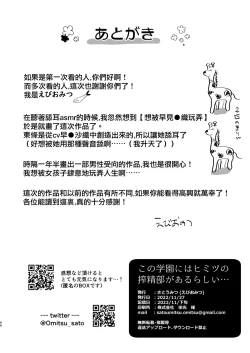 あとがき
如果是第一次看的人,你們好啊！
而多次看的人,這次也謝謝你們了！
我是えびおみつ
在聽著舔耳asmr的時候,我忽然想到【想被早見●織玩弄】
於是就畫了這次作品了。
東條是從cv早●沙織中創造出來的,所以讓她舔耳了
（好想被她用那種聲音舔啊……（我升天了））
時隔一年半畫出一部男性受向的作品,我也是很開心！
我想被女孩子肆意地玩弄人生啊……
這次的作品和以前的作品有所不同,如果你能看得高興就萬幸了！
各位能讀到這裏,真的十分感謝！
えびおみつ
感想など頂けると
とても元気になります…！
(匿名のBOXです)
--- twitter ---
@Omitsu_sato
この学園にはヒミツの
搾精部があるらしい…
発行日：2022/11/27
発行日：2022/11/下旬
無断転載・複製禁
違法アップロード、ダウンロード禁止